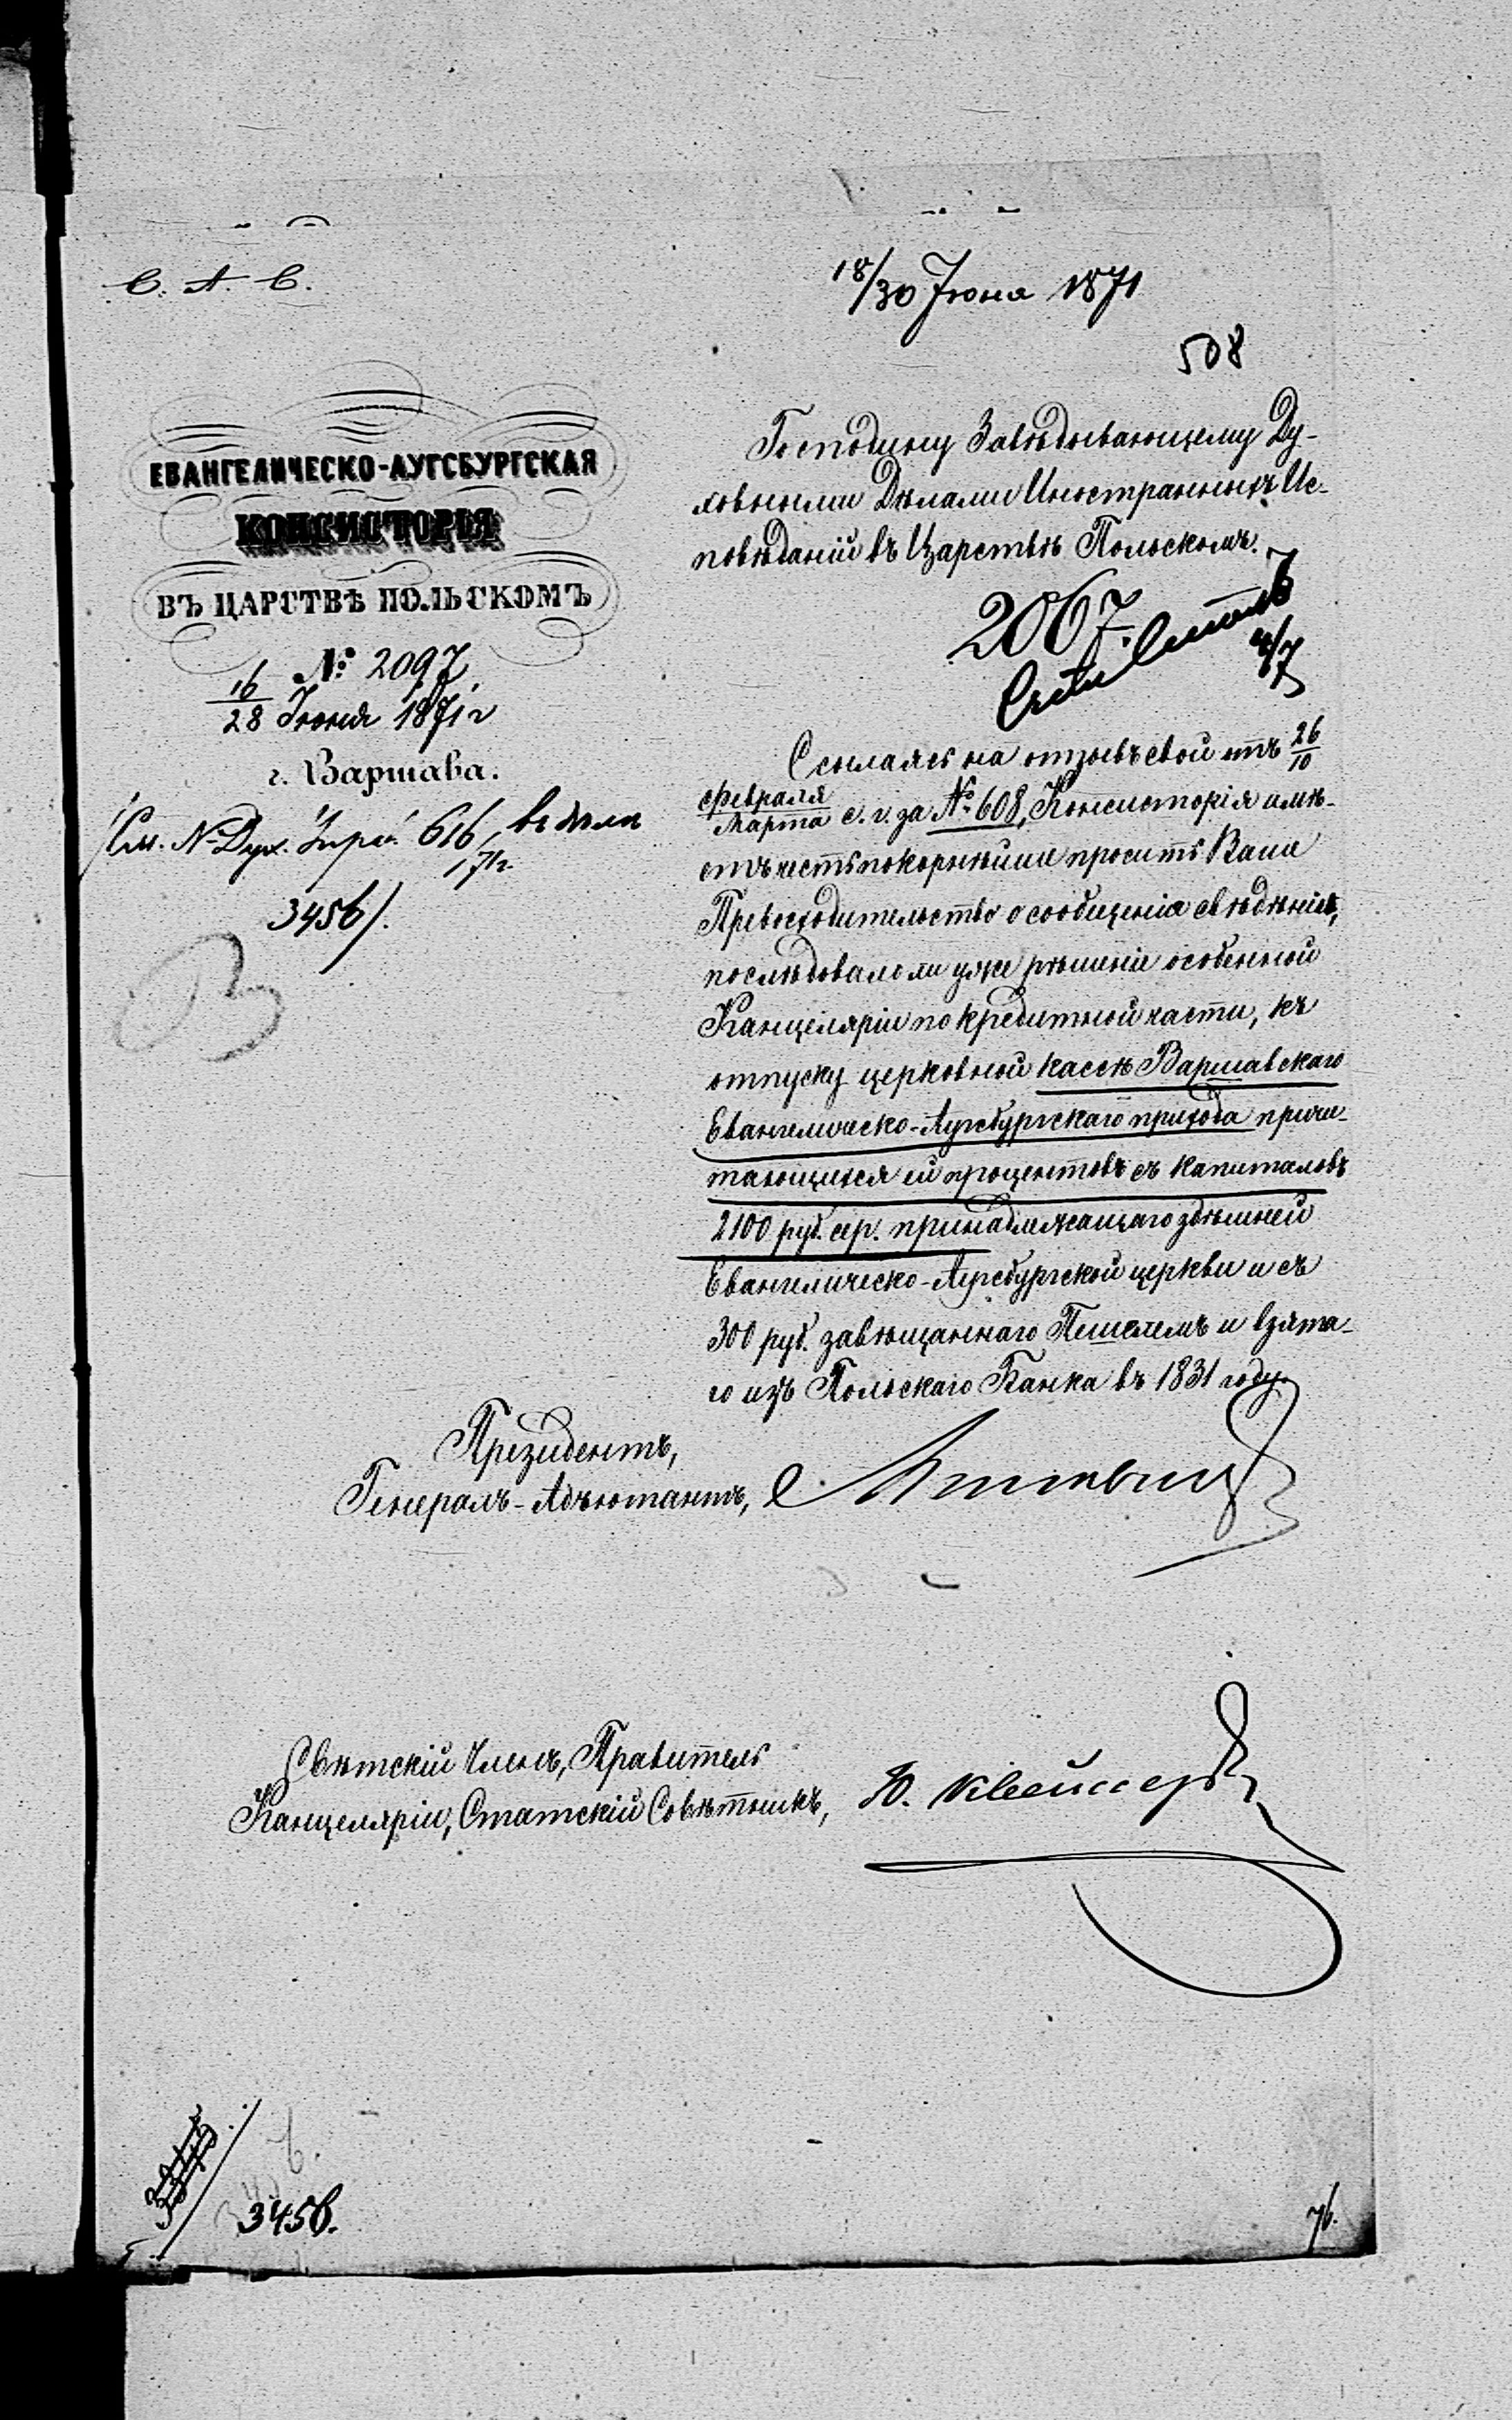 С. А. С.
18/30 Июня 1871
508
ЕВАНГЕЛИЧЕСКО-АУГСБУРГСКАЯ
КОНСИСТОРІЯ
ВЪ ЦАРСТВѢ ПОЛЬСКОМЪ
№ 2097
16/28 Июня 1871 г
г. Варшава.
/См. № Дух. 616/71 г. въ дѣлѣ
3456/.
Господину Завѣдывающему Ду-
ховными Дѣлами Иностранныхъ Ис-
повѣданій въ Царствѣ Польскомъ.
2067.
4/7
Ссылаясь на отзывъ свой отъ 26/10
Февраля/Марта с. г. за № 608, Консисторія имѣ-
етъ честь покорнѣйше просить Ваше
Превосходительство о сообщеніи свѣдѣнія,
послѣдовало ли уже рѣшеніе особенной
Канцеляріи по кредитной части, къ
отпуску церковной кассѣ Варшавскаго
Евангелическо-Аугсбургскаго прихода причи-
тающихся ей процентовъ съ капиталовъ
2100 руб. сер. принадлежащаго здѣшней
Евангелическо-Аугсбургской церкви и съ
300 руб. завѣщаннаго Пешелемъ и взята-
го изъ Польскаго Банка въ 1831 году.
Президентъ,
Генералъ-Адъютантъ,
Свѣтскій Членъ, Правитель
Канцеляріи, Статскій Совѣтникъ,
Ю.
3456.
76.